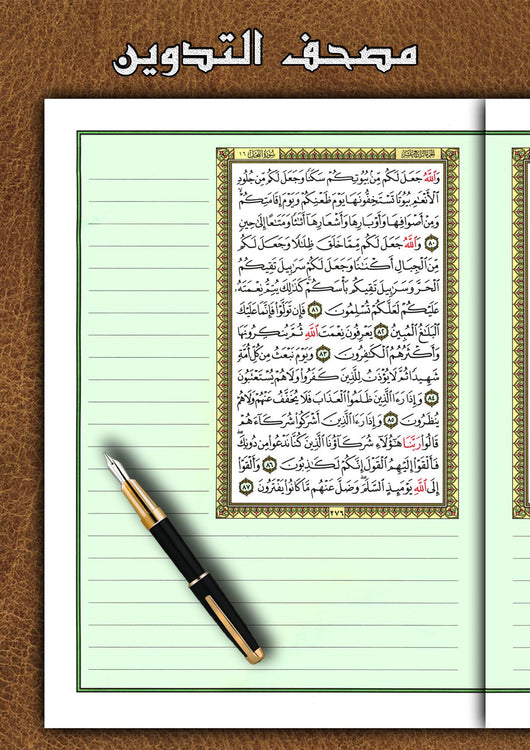 مصحف التدوين
سُورَةُ النَّحْل ١٦
وَاللَّهُ جَعَلَ لَكُم مِّنۢ بُيُوتِكُمْ سَكَنًا وَجَعَلَ لَكُم مِّن جُلُودِ
ٱلْأَنْعَٰمِ بُيُوتًا تَسْتَخِفُّونَهَا يَوْمَ ظَعْنِكُمْ وَيَوْمَ إِقَامَتِكُمْ
وَمِنْ أَصْوَافِهَا وَأَوْبَارِهَا وَأَشْعَارِهَآ أَثَٰثًا وَمَتَٰعًا إِلَىٰ حِينٍ
٨٠ وَٱللَّهُ جَعَلَ لَكُم مِّمَّا خَلَقَ ظِلَٰلًا وَجَعَلَ لَكُم
مِّنَ ٱلْجِبَالِ أَكْنَٰنًا وَجَعَلَ لَكُمْ سَرَٰبِيلَ تَقِيكُمُ
ٱلْحَرَّ وَسَرَٰبِيلَ تَقِيكُم بَأْسَكُمْ كَذَٰلِكَ يُتِمُّ نِعْمَتَهُۥ
عَلَيْكُمْ لَعَلَّكُمْ تُسْلِمُونَ ٨١ فَإِن تَوَلَّوْا۟ فَإِنَّمَا عَلَيْكَ
ٱلْبَلَٰغُ ٱلْمُبِينُ ٨٢ يَعْرِفُونَ نِعْمَتَ ٱللَّهِ ثُمَّ يُنكِرُونَهَا
وَأَكْثَرُهُمُ ٱلْكَٰفِرُونَ ٨٣ وَيَوْمَ نَبْعَثُ مِن كُلِّ أُمَّةٍ
شَهِيدًا ثُمَّ لَا يُؤْذَنُ لِلَّذِينَ كَفَرُوا۟ وَلَا هُمْ يُسْتَعْتَبُونَ
٨٤ وَإِذَا رَءَا ٱلَّذِينَ ظَلَمُوا۟ ٱلْعَذَابَ فَلَا يُخَفَّفُ عَنْهُمْ وَلَا هُمْ
يُنظَرُونَ ٨٥ وَإِذَا رَءَا ٱلَّذِينَ أَشْرَكُوا۟ شُرَكَآءَهُمْ
قَالُوا۟ رَبَّنَا هَٰٓؤُلَآءِ شُرَكَآؤُنَا ٱلَّذِينَ كُنَّا نَدْعُوا۟ مِن دُونِكَ
فَأَلْقَوْا۟ إِلَيْهِمُ ٱلْقَوْلَ إِنَّكُمْ لَكَٰذِبُونَ ٨٦ وَأَلْقَوْا۟
إِلَى ٱللَّهِ يَوْمَئِذٍ ٱلسَّلَمَ وَضَلَّ عَنْهُم مَّا كَانُوا۟ يَفْتَرُونَ ٨٧
٢٧٦